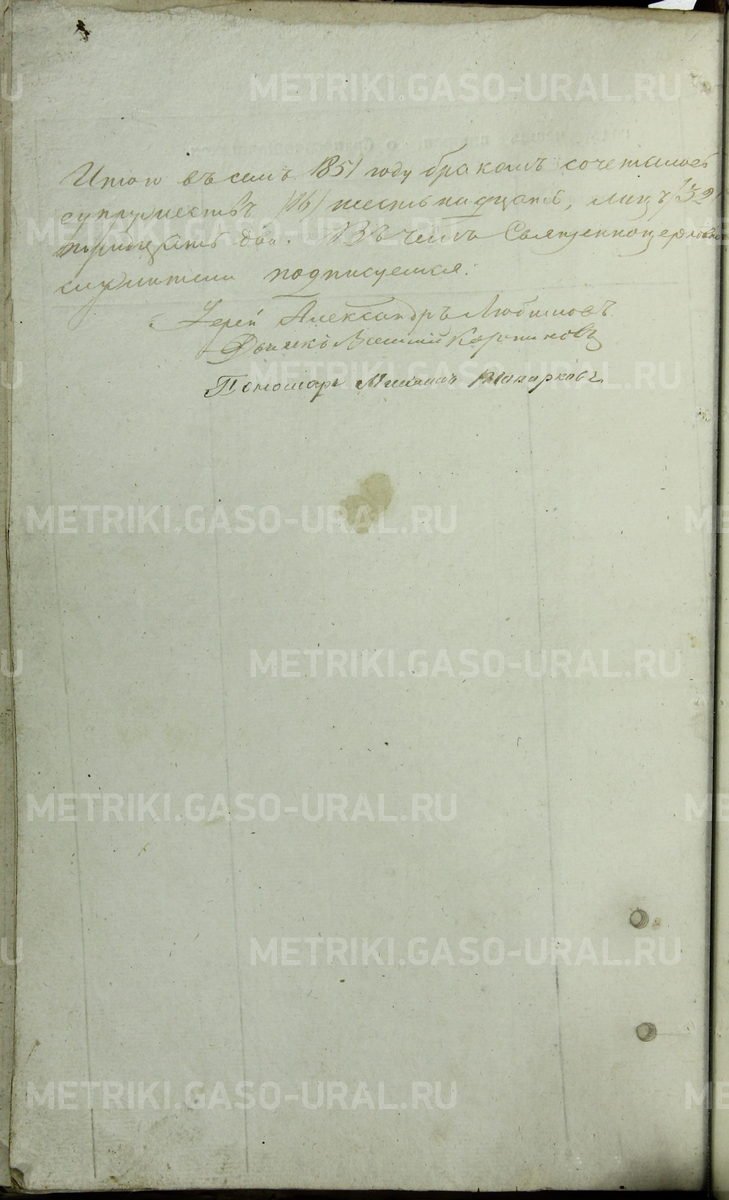 Итого въ семъ 1851 году бракомъ сочеталось
супружествъ (16) шестьнадцать, лицъ (32)
тридцать два. Въ чемъ Священноцерковно
служители подписуемся:
Іерей Александръ Любимовъ
Дьячекъ Василій
Пономарь
METRIKI.GASO-URAL.RU
METRIKI.GASO-URAL.RU
METRIKI.GASO-URAL.RU
METRIKI.GASO-URAL.RU
METRIKI.GASO-URAL.RU
METRIKI.GASO-URAL.RU
METRIKI.GASO-URAL.RU
METRIKI.GASO-URAL.RU